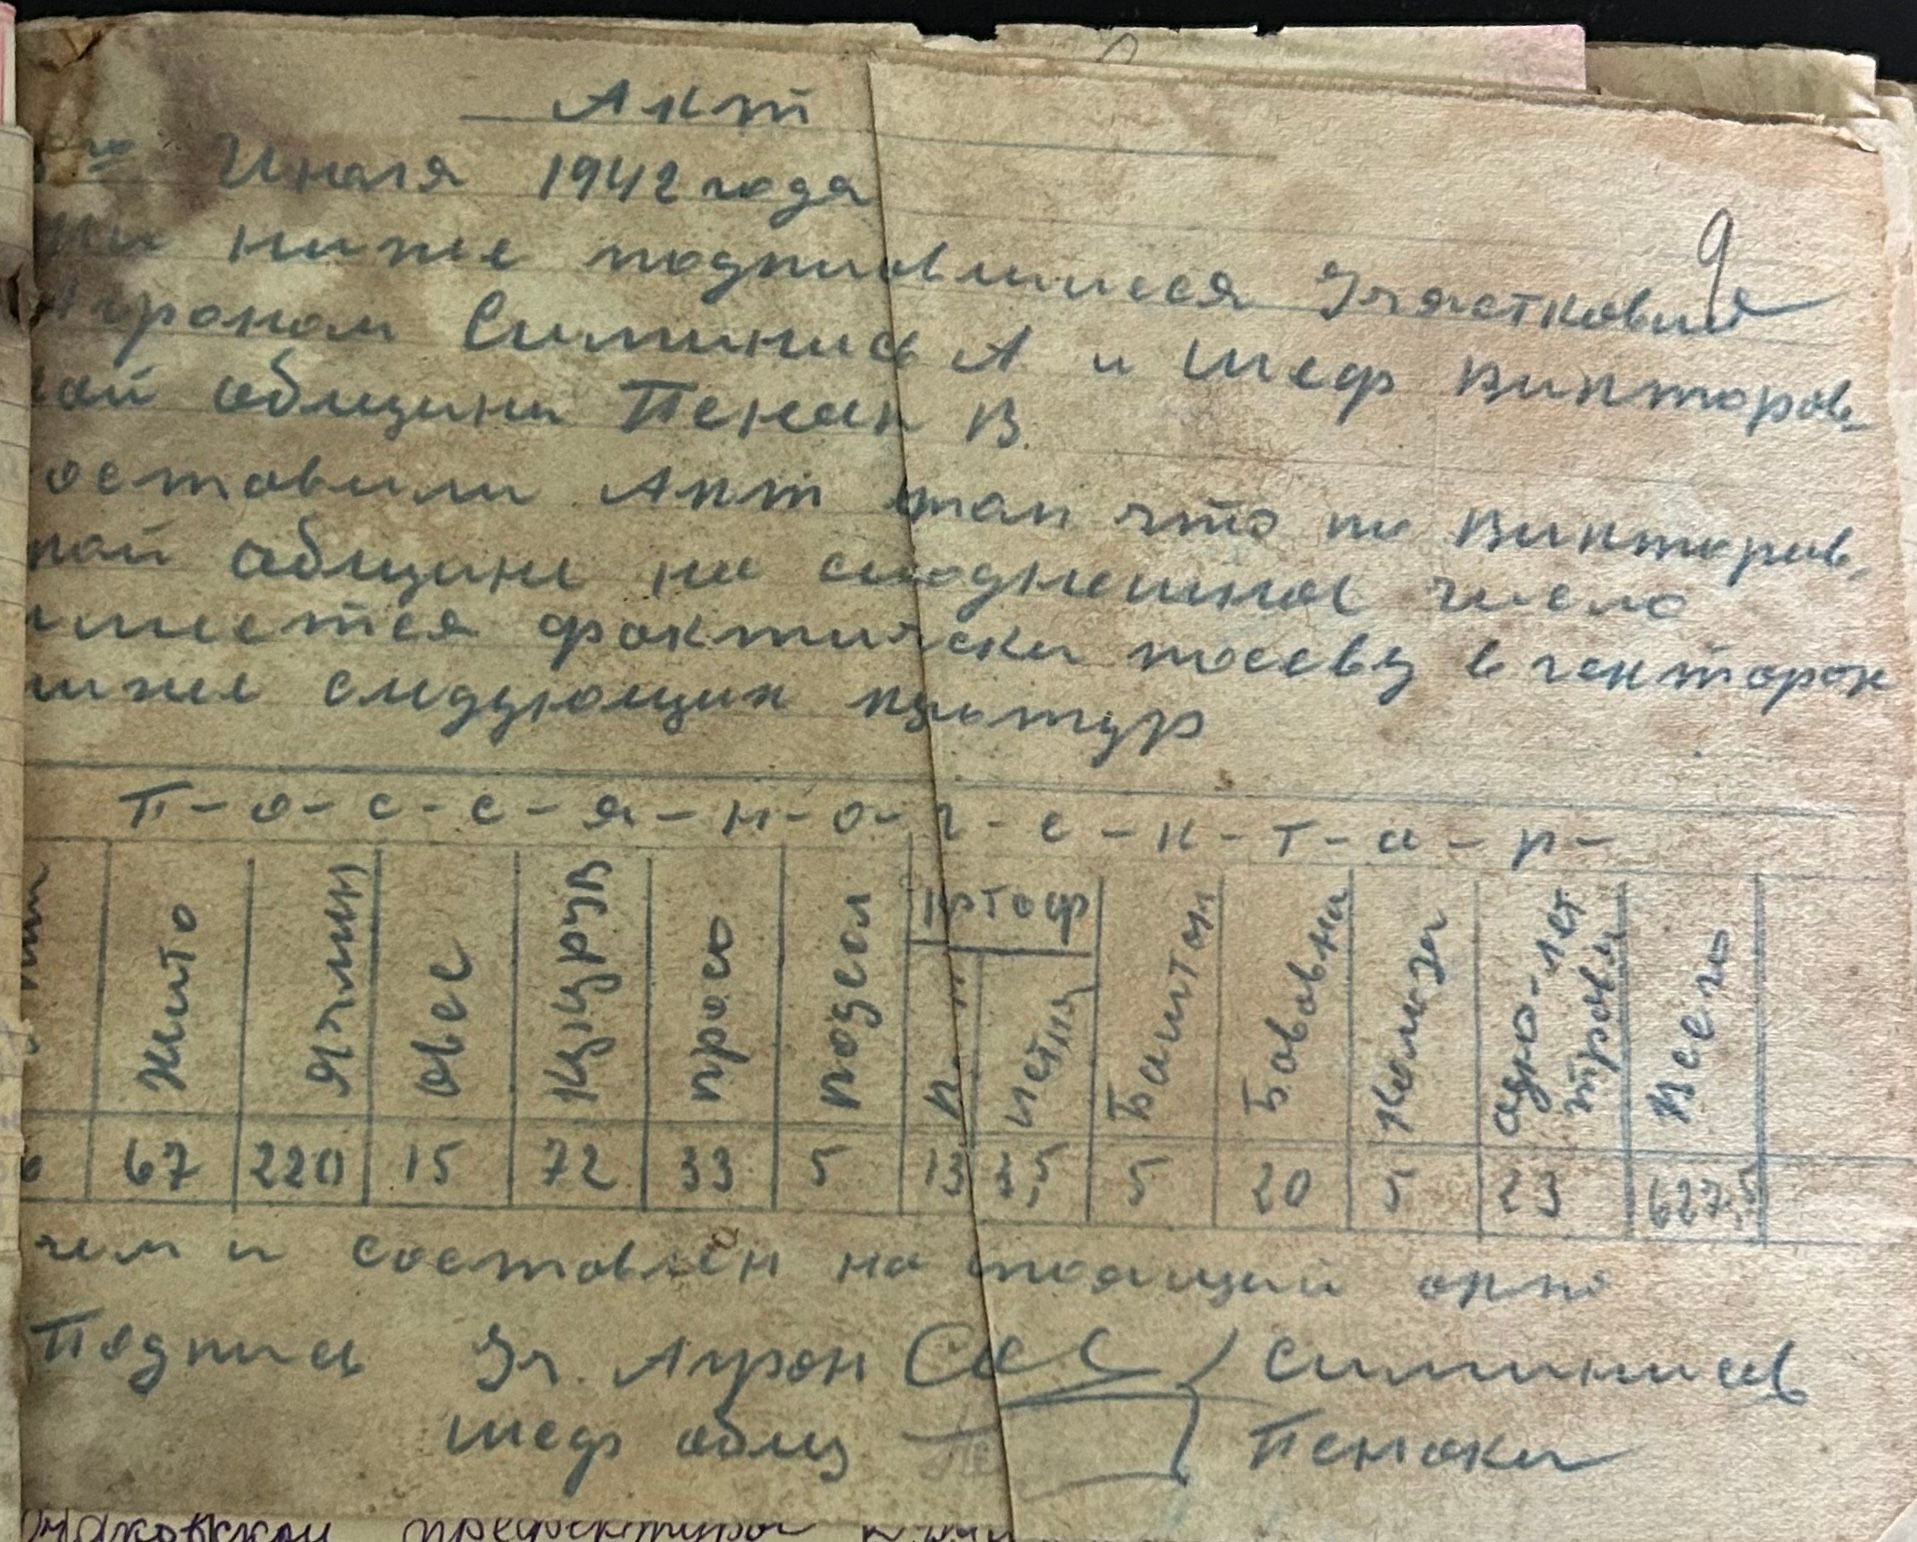 Акт
го Июля 1942 года
ниже подписавшиеся Участковий
Агроном Симинисв А и Шеф Викторов-
кой общини Пенак В.
оставили Акт втом что по Викторов,
кой общине на сиоднешное число
имеется фактически посеву в гектарох
ниже следующих культур
П-о-с-с-я-н-о-г-е-к-т-а-р-
Жито
Ячмин
Овес
Кукуруз
просо
подсол
кртоф
летня
Баштан
Бавовна
Кользи
одно-лет трави
Всего
6 67 220 15 72 33 5 13 3,5 5 20 5 23 627,5
чем и составлен настоящий акт
Подпись Уч. Агрон Симинисв
шеф общ Пенаки
префектури